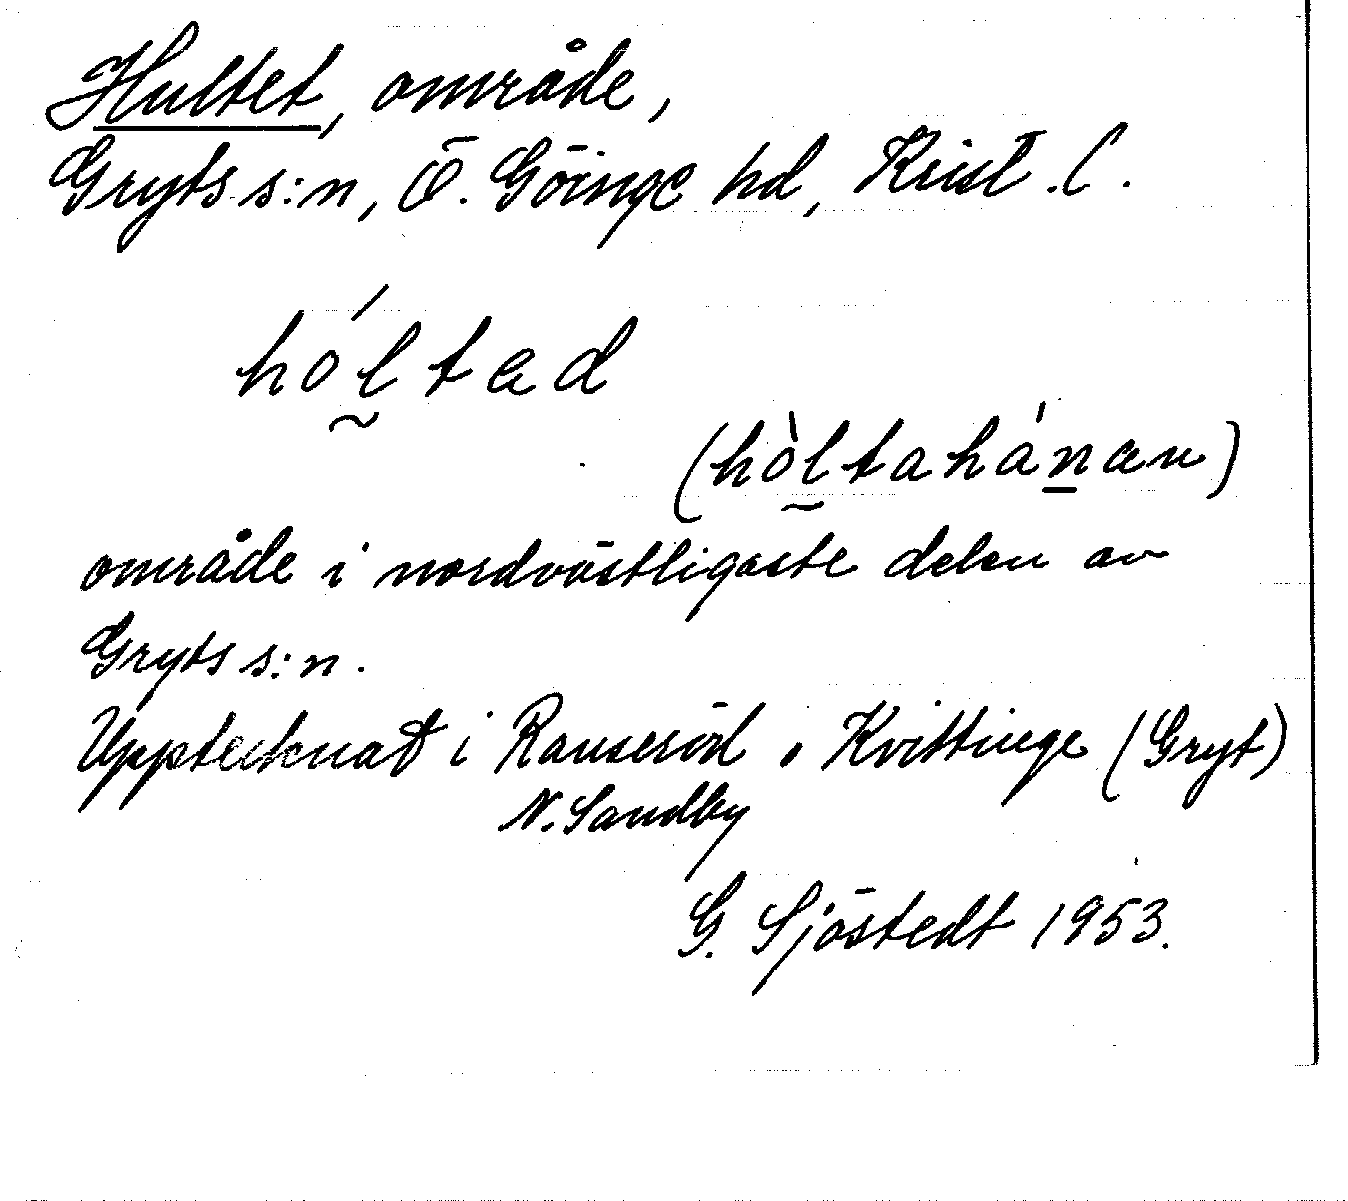 Hultet, område,
Gryts s:n, Ö. Göinge hd, Krist. l.
hól̰tad
(hòl̰tahán̲an)
område i nordvästligaste delen av
Gryts s:n.
Upptecknat i Ransersöd o. Kvittinge (Gryt)
N. Sandby
G. Sjöstedt 1953.